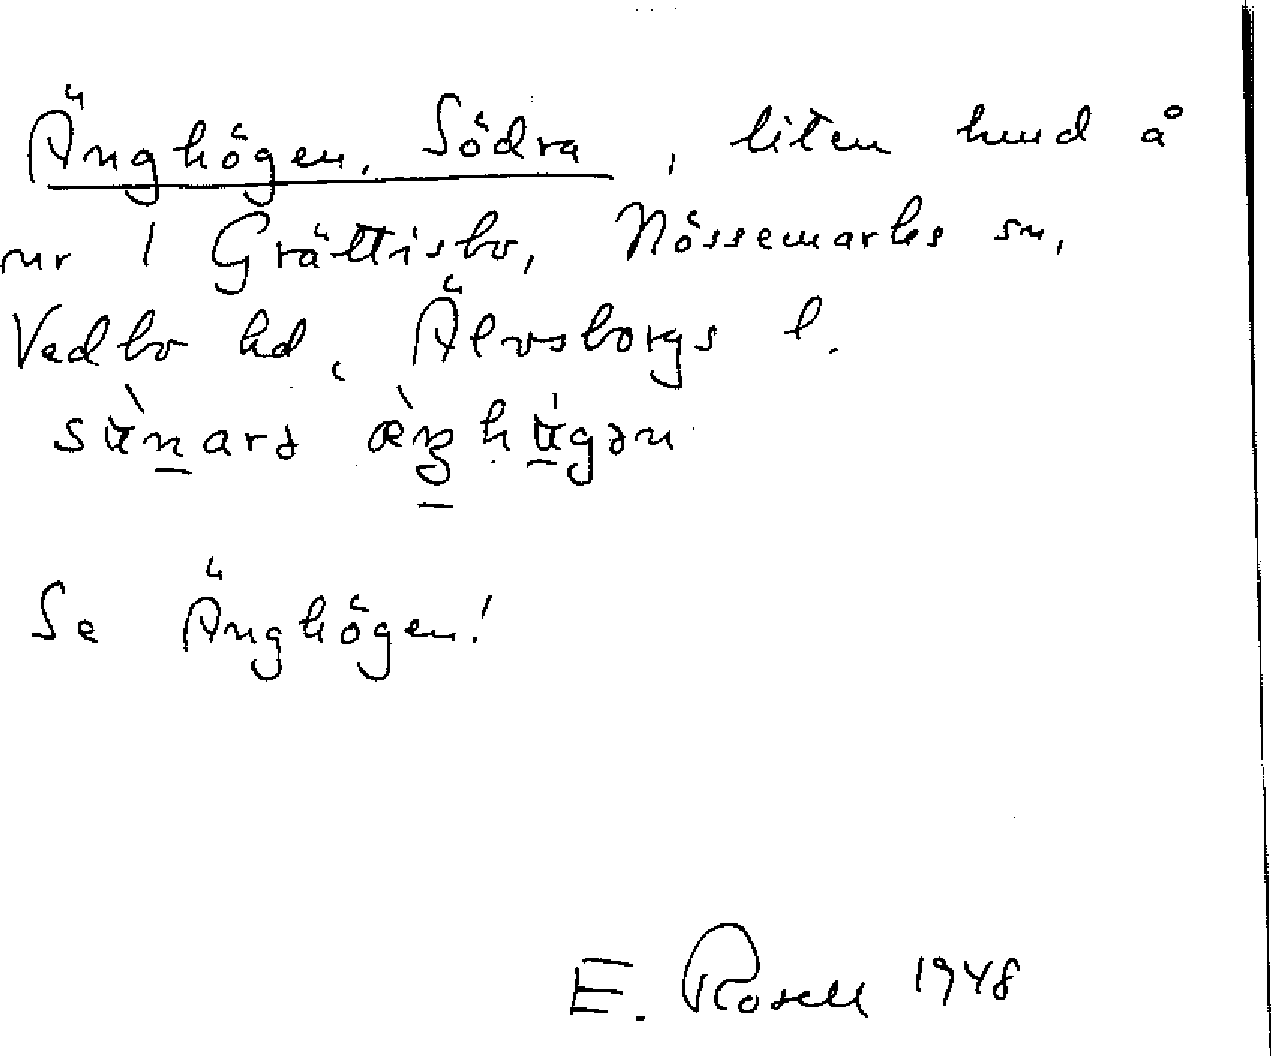 Änghögen, Södra, liten hmd å
nr 1 Grättisbo, Nössemarks sn,
Vedbo hd, Älvsborgs l.
Se Änghögen!
E. Rosell 1948